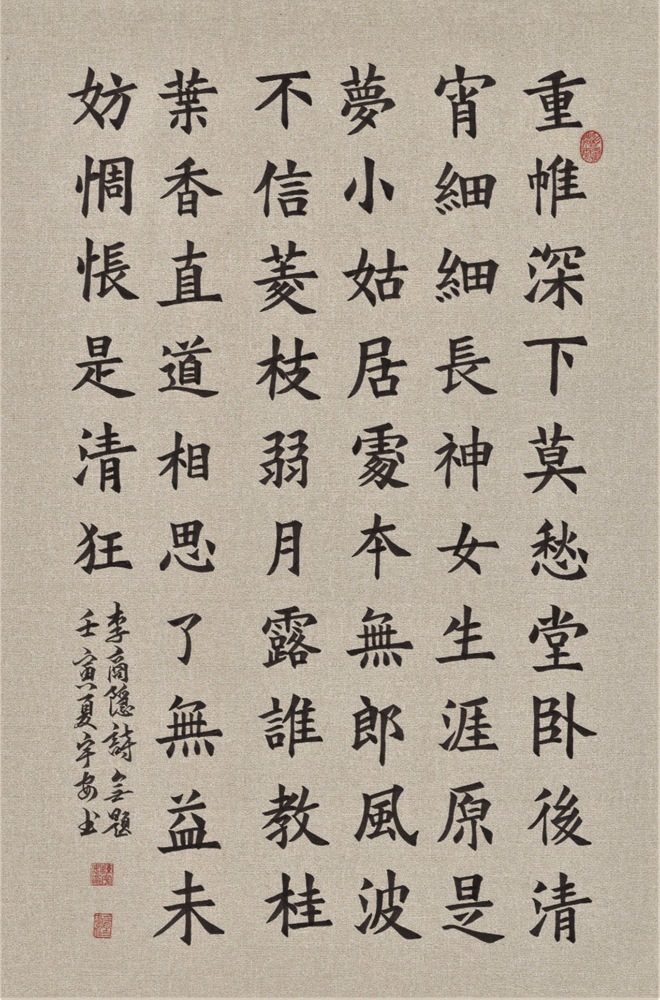 重帷深下莫愁堂卧後清
宵細細長神女生涯原是
夢小姑居處本無郎風波
不信菱枝弱月露誰教桂
葉香直道相思了無益未
妨惆悵是清狂
李商隱詩無題
壬寅夏宇安书